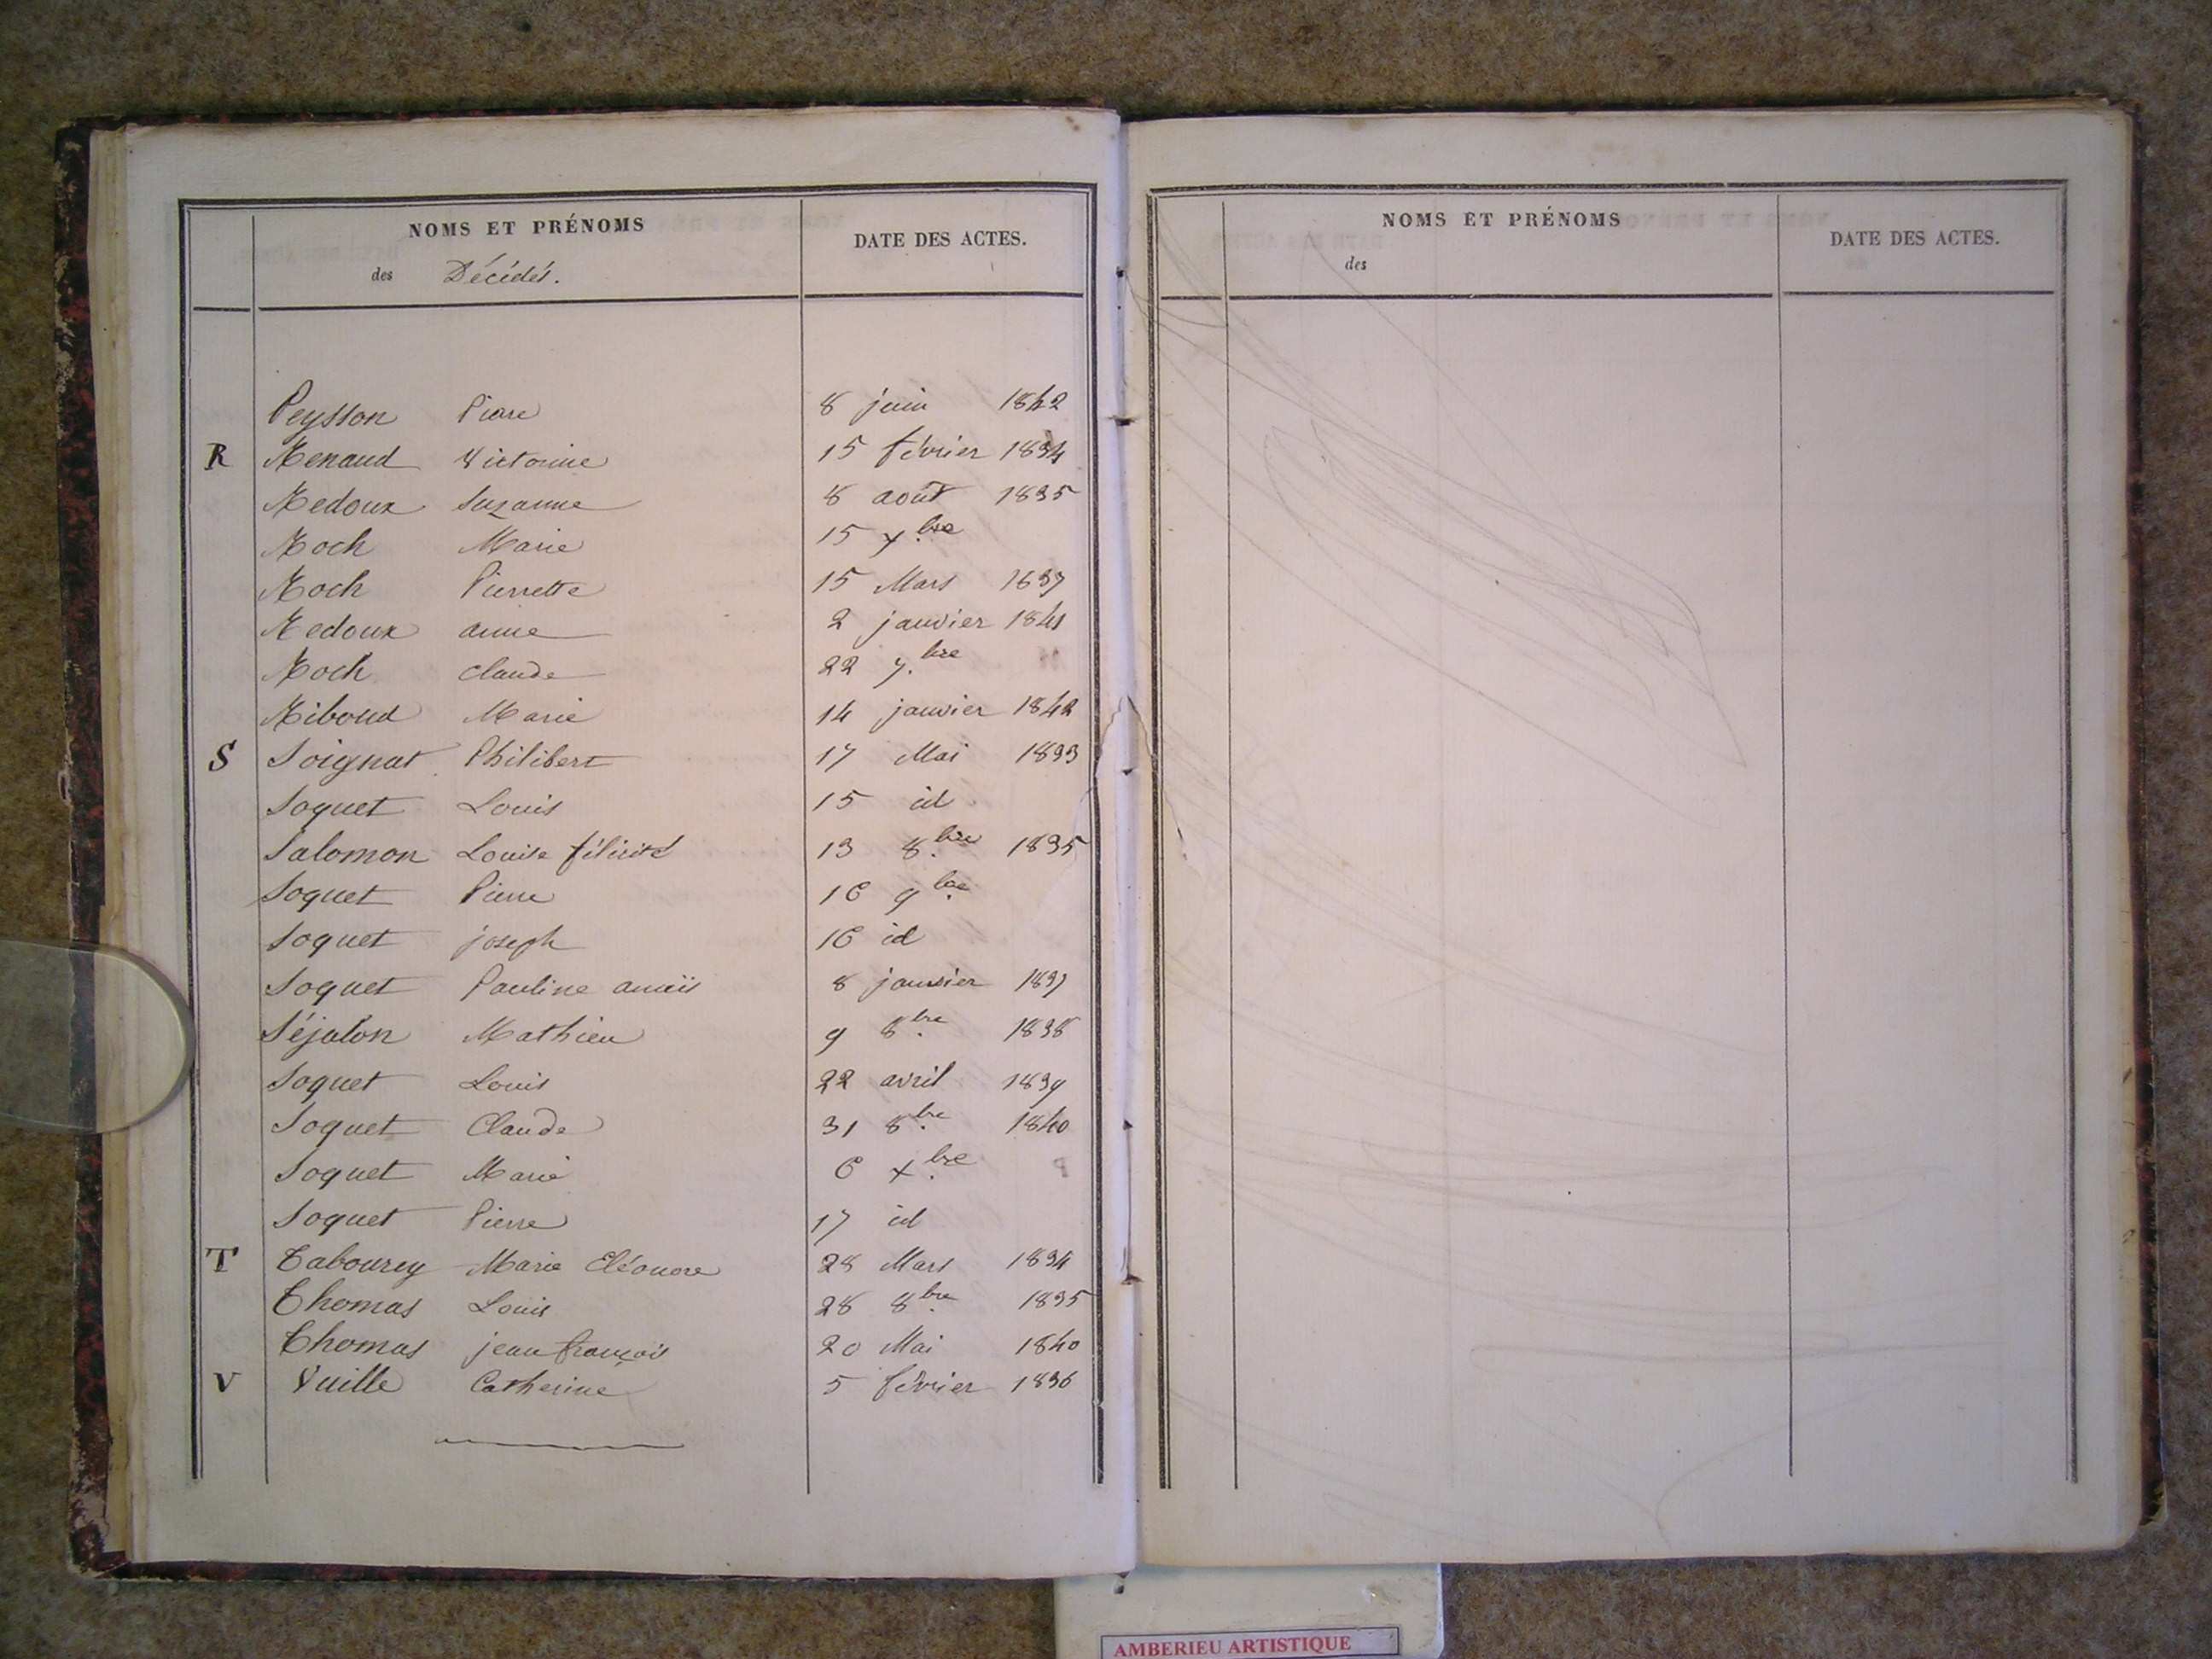 NOMS ET PRÉNOMS
des Décédés.
DATE DES ACTES.
Peysson Pierre 8 juin 1842
R Renaud Victorine 15 février 1834
Redoux Suzanne 8 août 1835
Roch Marie 15 xbre
Roch Pierrette 15 Mars 1837
Redoux anne 2 janvier 1841
Roch claude 22 7bre
Riboud Marie 14 janvier 1842
S Soignat Philibert 17 Mai 1833
Soquet Louis 15 id
Salomon Louise félicité 13 8bre 1835
Soquet Pierre 16 9bre
Soquet joseph 16 id
Soquet Pauline anaïs 8 janvier 1837
Séjalon Mathieu 9 8bre 1838
Soquet Louis 22 avril 1839
Soquet Claude 31 8bre 1840
Soquet Marie 6 xbre
Soquet Pierre 17 id
T Tabourey Marie Eléonore 28 Mars 1834
Thomas Louis 28 8bre 1835
Thomas jean françois 20 Mai 1840
V Vuille Catherine 5 février 1836
NOMS ET PRÉNOMS
des
DATE DES ACTES.
AMBERIEU ARTISTIQUE